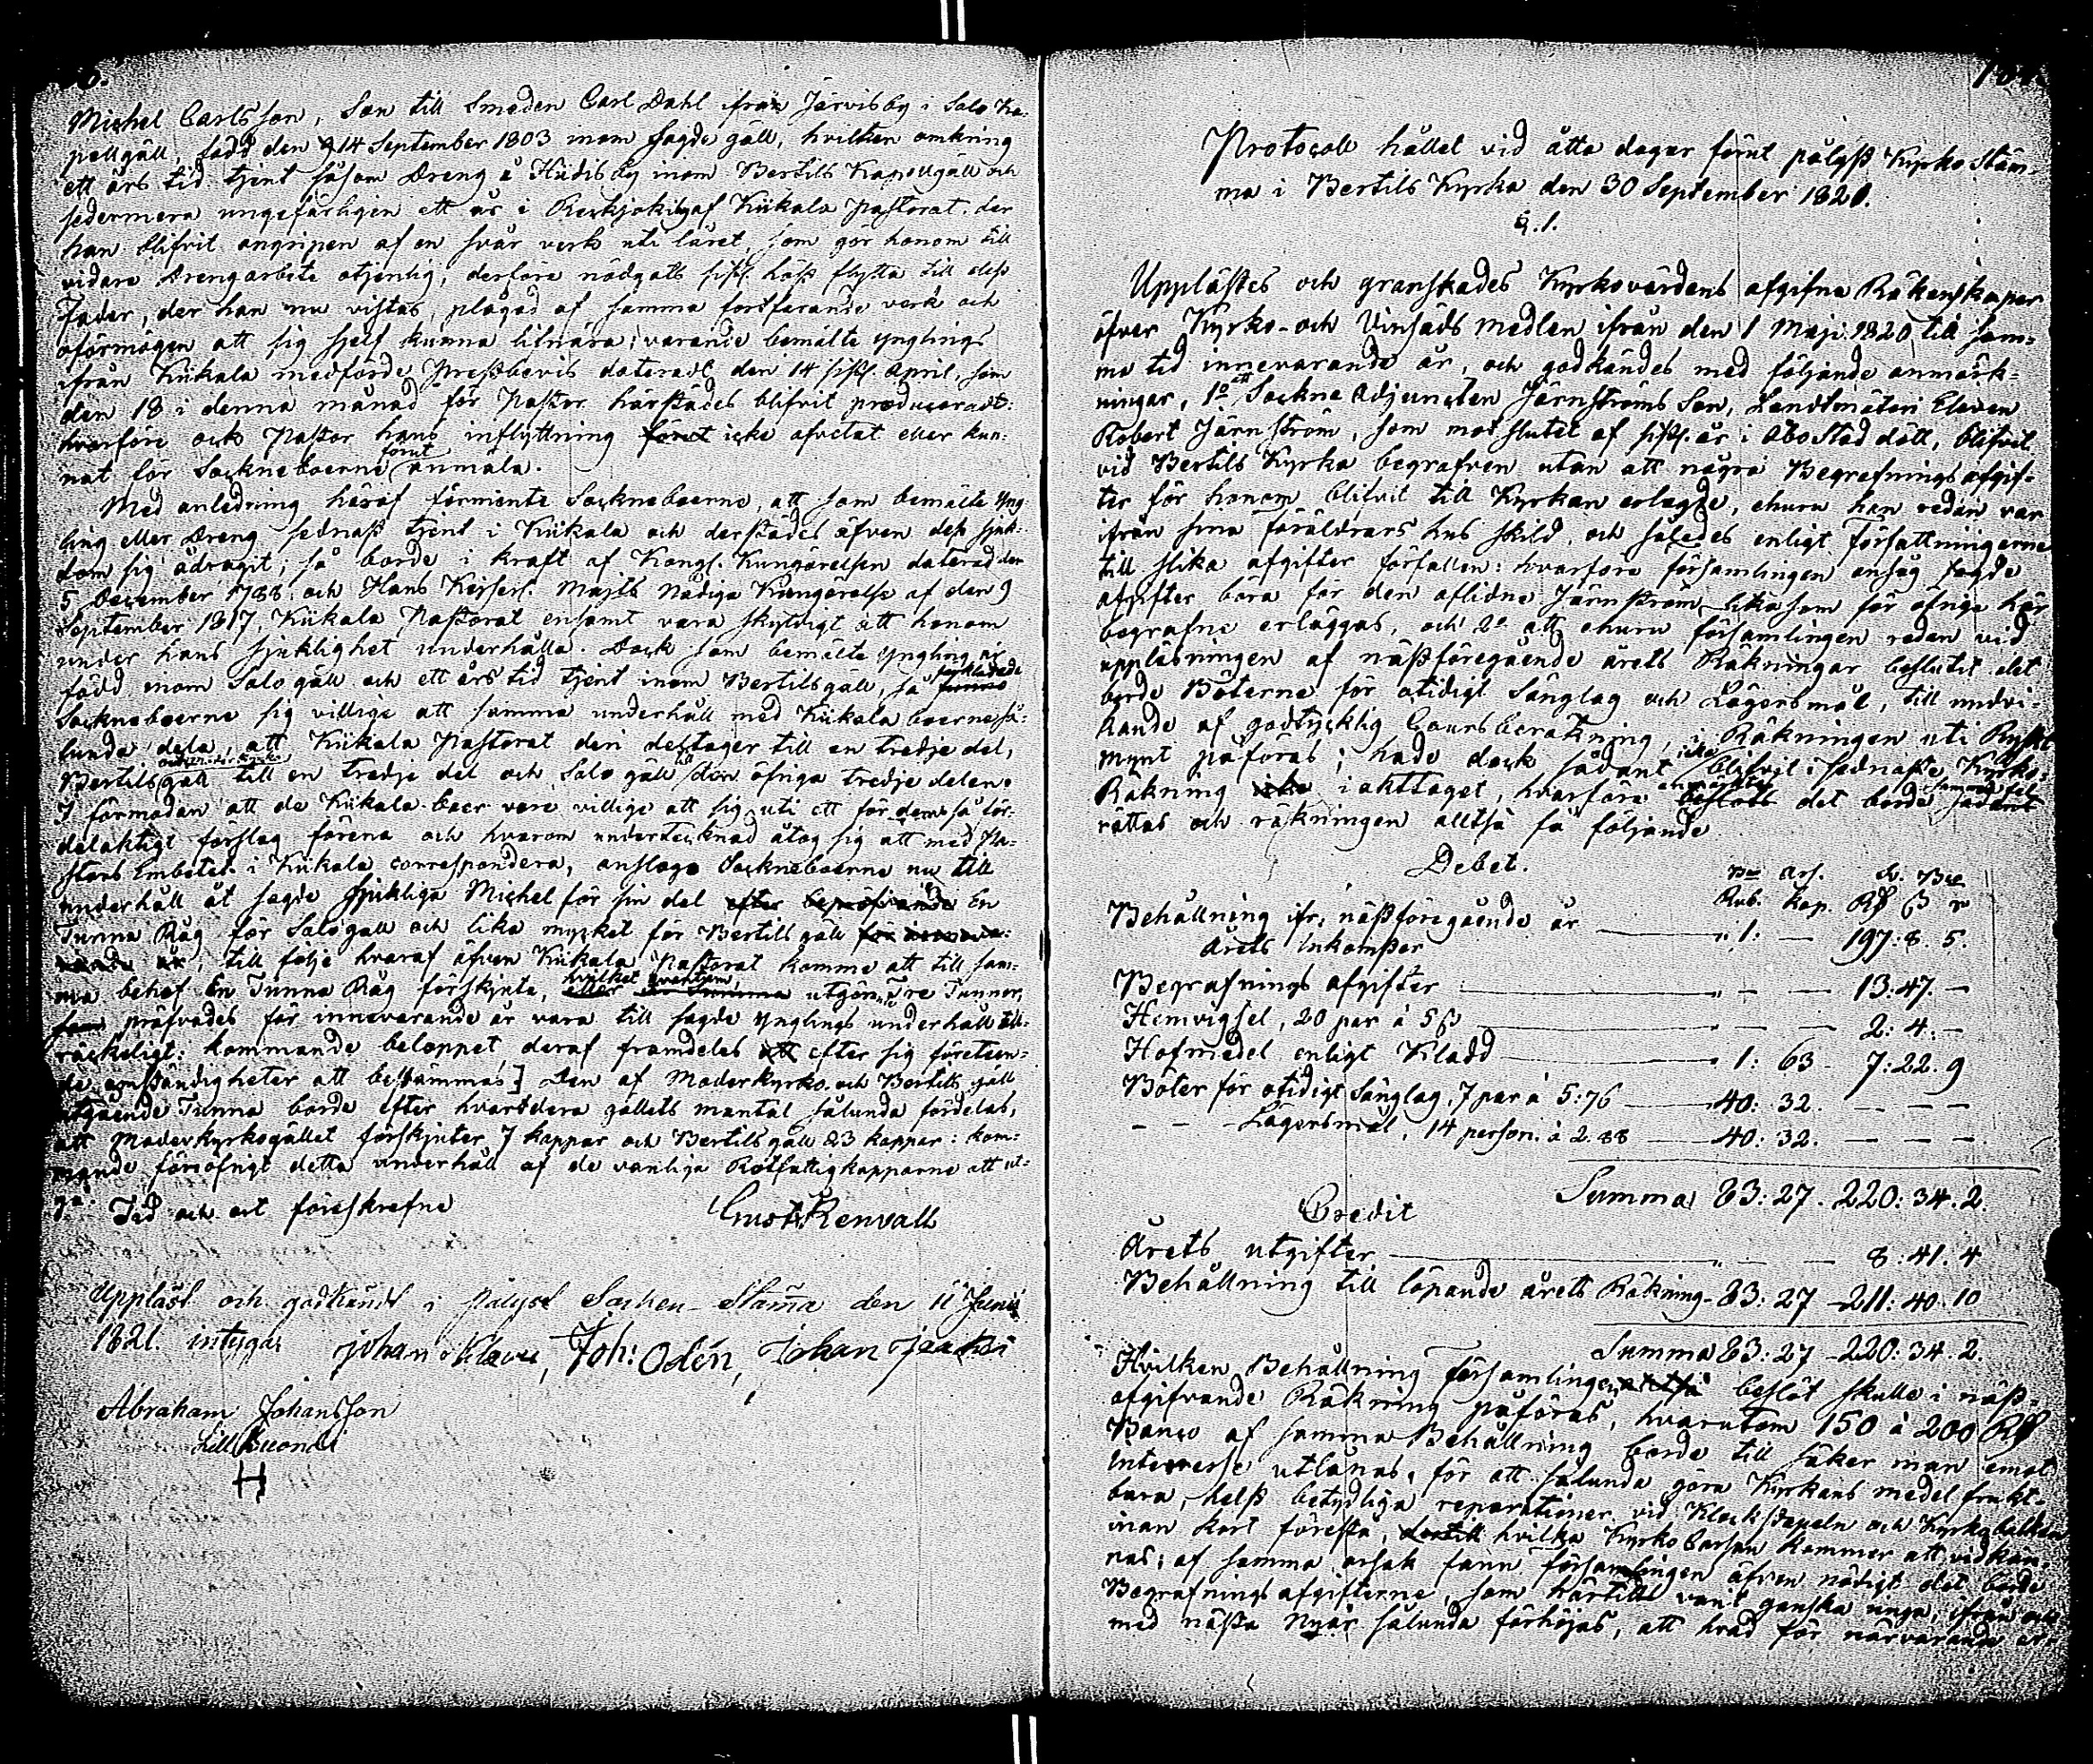 Michel Carlsson, Son till Smeden Carl Dahl ifrån Järvisby i Salo Ka-
pellgäll, född den 14 September 1803 inom sagde gäll, hvilken omkring
ett års tid tjent såsom Dreng å Hüdisby inom Bertils Kapellgäll och
sedermera ungefärligen ett år i Kiikala Pastorat, der
han blifvit angripen af en svår verk uti låret, som gör honom till
vidare Drengarbete otjenlig, derföre nödgats sistl. höst flytta till dess
Fader, der han nu vistas, plågad af samma fortfarande verk och
oförmögen att sig sjelf kunna lifnära; varande bemälte ynglings
ifrån Kiikala medförde Prestbevis dateradt den 14 sistl. April, som
den 18 i denna månad för Pastor härstädes blifvit produceradt:
hvarföre ock Pastor hans inflyttning förut icke afvetat eller kun-
nat för Sockneboerne förut anmäla.
Med anledning häraf förmente Sockneboerne, att som bemälte Yng-
ling eller Dreng sednast tjent i Kiikala och derstädes äfven dess sjuk-
dom sig ådragit; så borde i kraft af Kongl. Kungörelsen daterad den
5 December 1788, och Hans Keiserl. Majts Nådiga Kungörelse af den 9
September 1817, Kiikala Pastorat ensamt vara skyldigt att honom
under hans sjuklighet underhålla. Dock som bemälte yngling är
född inom Salo gäll och ett års tid tjent inom Bertils gäll, så förklarade
Sockneboerne sig villige att samma underhåll med Kiikala boerne så-
lunda dela, att Kiikala Pastorat deri deltager till en tredje del,
Bertils gäll till en tredje del och Salo gäll till den öfriga tredje delen.
I förmodan att de Kiikala boer vore villige att sig uti ett för dem så för-
delaktigt förslag förena och hvarom undertecknad åtog sig att med Pa-
stors Embetet i Kiikala correspondera, anslogo Sockneboerne nu till
underhåll åt sagde sjukliga Michel för sin del efter En
Tunna Råg för Salo gäll och lika mycket för Bertils gäll
till följe hvaraf äfven Kiikala Pastorat komme att till sam-
ma behof En Tunna Råg förskjuta, hvilket utgör Tre Tunnor,
som pröfvades för innevarande år vara till sagde ynglings underhåll till-
räckeligt: kommande beloppet deraf framdeles att efter sig företeen-
de omständigheter att bestämmas] Den af Moderkyrko och Bertils gäll
utgående Tunna borde efter hvartdera gällets mantal sålunda fördelas,
att Moderkyrkogället förskjuter 7 kappar och Bertils gäll 23 kappar: kom-
mande föröfrigt detta underhåll af de vanliga Rotfattigkapparne att ut-
gå. Tid och ort föreskrefne
Gust. Renvall
Uppläst och godkändt i pålyst Socken-Stämma den 11 Junii
1821. intyga Johan Joh: Odén, Johan
Abraham Johansson
Lill
H
Protocoll hållet vid åtta dagar förut pålyst Kyrko Stäm-
ma i Bertils Kyrka den 30 September 1821.
§. 1.
Upplästes och granskades Kyrkovärdens afgifne Räkenskaper
öfver Kyrko- och Vinsäds medlen ifrån den 1 Maji 1820 till sam-
ma tid innevarande år, och godkändes med följande anmärk-
ningar, 1o att Sockne Adjuncten Järnströms Son, Landtmäteri Eleven
Robert Järnström, som mot slutet af sistl. år i Åbo Stad dött, blifvit
vid Bertils Kyrka begrafven utan att några Begrafnings afgif-
ter för honom blifvit till Kyrkan erlagde, ehuru han redan var
ifrån sina föräldrars hus skild, och således enligt Författningerne
till slika afgifter förfallen: hvarföre församlingen ansåg sagde
afgifter böra för den aflidne Järnström lika som för öfrige här
begrafne erläggas, och 2o att ehuru församlingen redan vid
uppläsningen af nästföregående årets Räkningar beslutit det
borde Böterne för otidigt Sänglag och Lägersmål, till undvi-
kande af godtycklig Coursberäkning, i Räkningen uti Ryskt
mynt påföras; hade dock sådant icke blifvit i sednaste Kyrko-
Räkning i akttaget, hvarföre det borde sådant
rättas och räkningen alltså få följande
Debet.
Bco Ass. R. Bco
Rub. Kop. Rd ß r
Behållning ifr. nästföregående år — 1: — 197: 8. 5.
Årets Inkomster
Begrafnings afgifter — — — 13: 47. —
Hemvigsel, 20 par à 5 ß — — — 2: 4: —
Håfmedel enligt Kladd — 1: 63 — 7: 22. 9
Böter för otidigt Sänglag, 7 par à 5: 76 — 40: 32. — — —
— — — Lägersmål, 14 person. à 2. 88 — 40: 32. — — —
Summa 83: 27. 220: 34. 2.
Credit
Årets utgifter — — — 8: 41. 4
Behållning till löpande årets Räkning — 83: 27 — 211: 40. 10
Summa 83: 27 — 220: 34. 2.
Hvilken Behållning församlingen beslöt skulle i näst
afgifvande Räkning påföras, hvarutom 150 à 200 Rd
Banco af samma Behållning borde till säker man emot
Interesse utlånas, för att sålunda göra Kyrkans medel frukt-
bara, helst betydliga reparationer vid Klockstapeln och Kyrkobalken
inan kort förestå, hvilka Kyrko Cassan kommer att vidkän-
nas; af samma orsak fann församlingen äfven nödigt det borde
Begrafnings afgifterne, som härtills varit ganska ringa, ifrån och
med nästa Nyår sålunda förhöjas, att hvad för närvarande er-